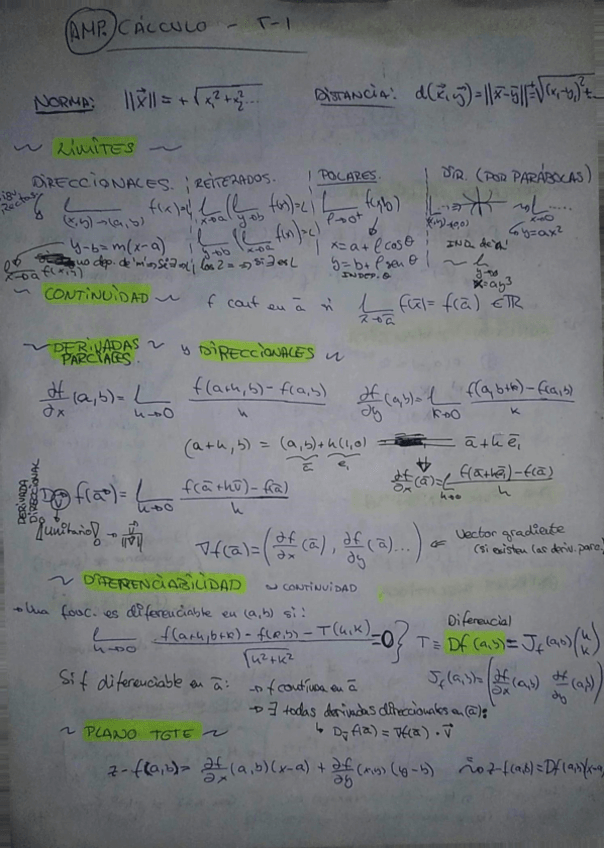 AMP. CÁLCULO - T-1
NORMA: ||x̄|| = +√x₁²+x₂²... DISTANCIA: d(x̄,ȳ)=||x̄-ȳ||=+√(x₁-y₁)²+...
~ LÍMITES ~
DIRECCIONALES. REITERADOS. POLARES. DIR. (POR PARÁBOLAS)
(x,y)→(a,b) f(x)=L x→a (y→b f(x)=L) ρ→0⁺ f(x,y)
y-b=m(x-a) y→b (x→a f(x)=L) x=a+ρcosθ y=ax²
y=b+ρsenθ
INDEP. θ x=ay³
~ CONTINUIDAD ~ f cont en ā si L x̄→ā f(x̄)=f(ā) ∈ℝ
~ DERIVADAS PARCIALES y DIRECCIONALES ~
∂f/∂x (a,b)= L h→0 f(a+h,b)-f(a,b)/h ∂f/∂y (a,b)= L k→0 f(a,b+k)-f(a,b)/k
(a+h,b) = (a,b)+h(1,0) = ā+hē₁
ā e₁
∂f/∂x (ā)= L h→0 f(ā+hē₁)-f(ā)/h
DERIVADA DIRECCIONAL
D v̄ f(ā)= L h→0 f(ā+hv̄)-f(ā)/h
¡unitario! → v̄/||v̄||
∇f(ā)=(∂f/∂x (ā), ∂f/∂y (ā)...) Vector gradiente
(si existen las deriv. parc.)
~ DIFERENCIABILIDAD ~ CONTINUIDAD
→ Una func. es diferenciable en (a,b) si:
L h→0 f(a+h,b+k)-f(a,b)-T(h,k)/√h²+k² =0} T ≡ Df(a,b) = J_f(a,b)(h k)
Diferencial
J_f(a,b)=(∂f/∂x (a,b) ∂f/∂y (a,b))
Si f diferenciable en ā: → f continua en ā
→ ∃ todas derivadas direccionales en (ā):
↳ D v̄ f(ā) = ∇f(ā) · v̄
~ PLANO TGTE ~
z-f(a,b)= ∂f/∂x (a,b)(x-a) + ∂f/∂y (a,b)(y-b) z-f(a,b)=Df(a,b)(x-a,